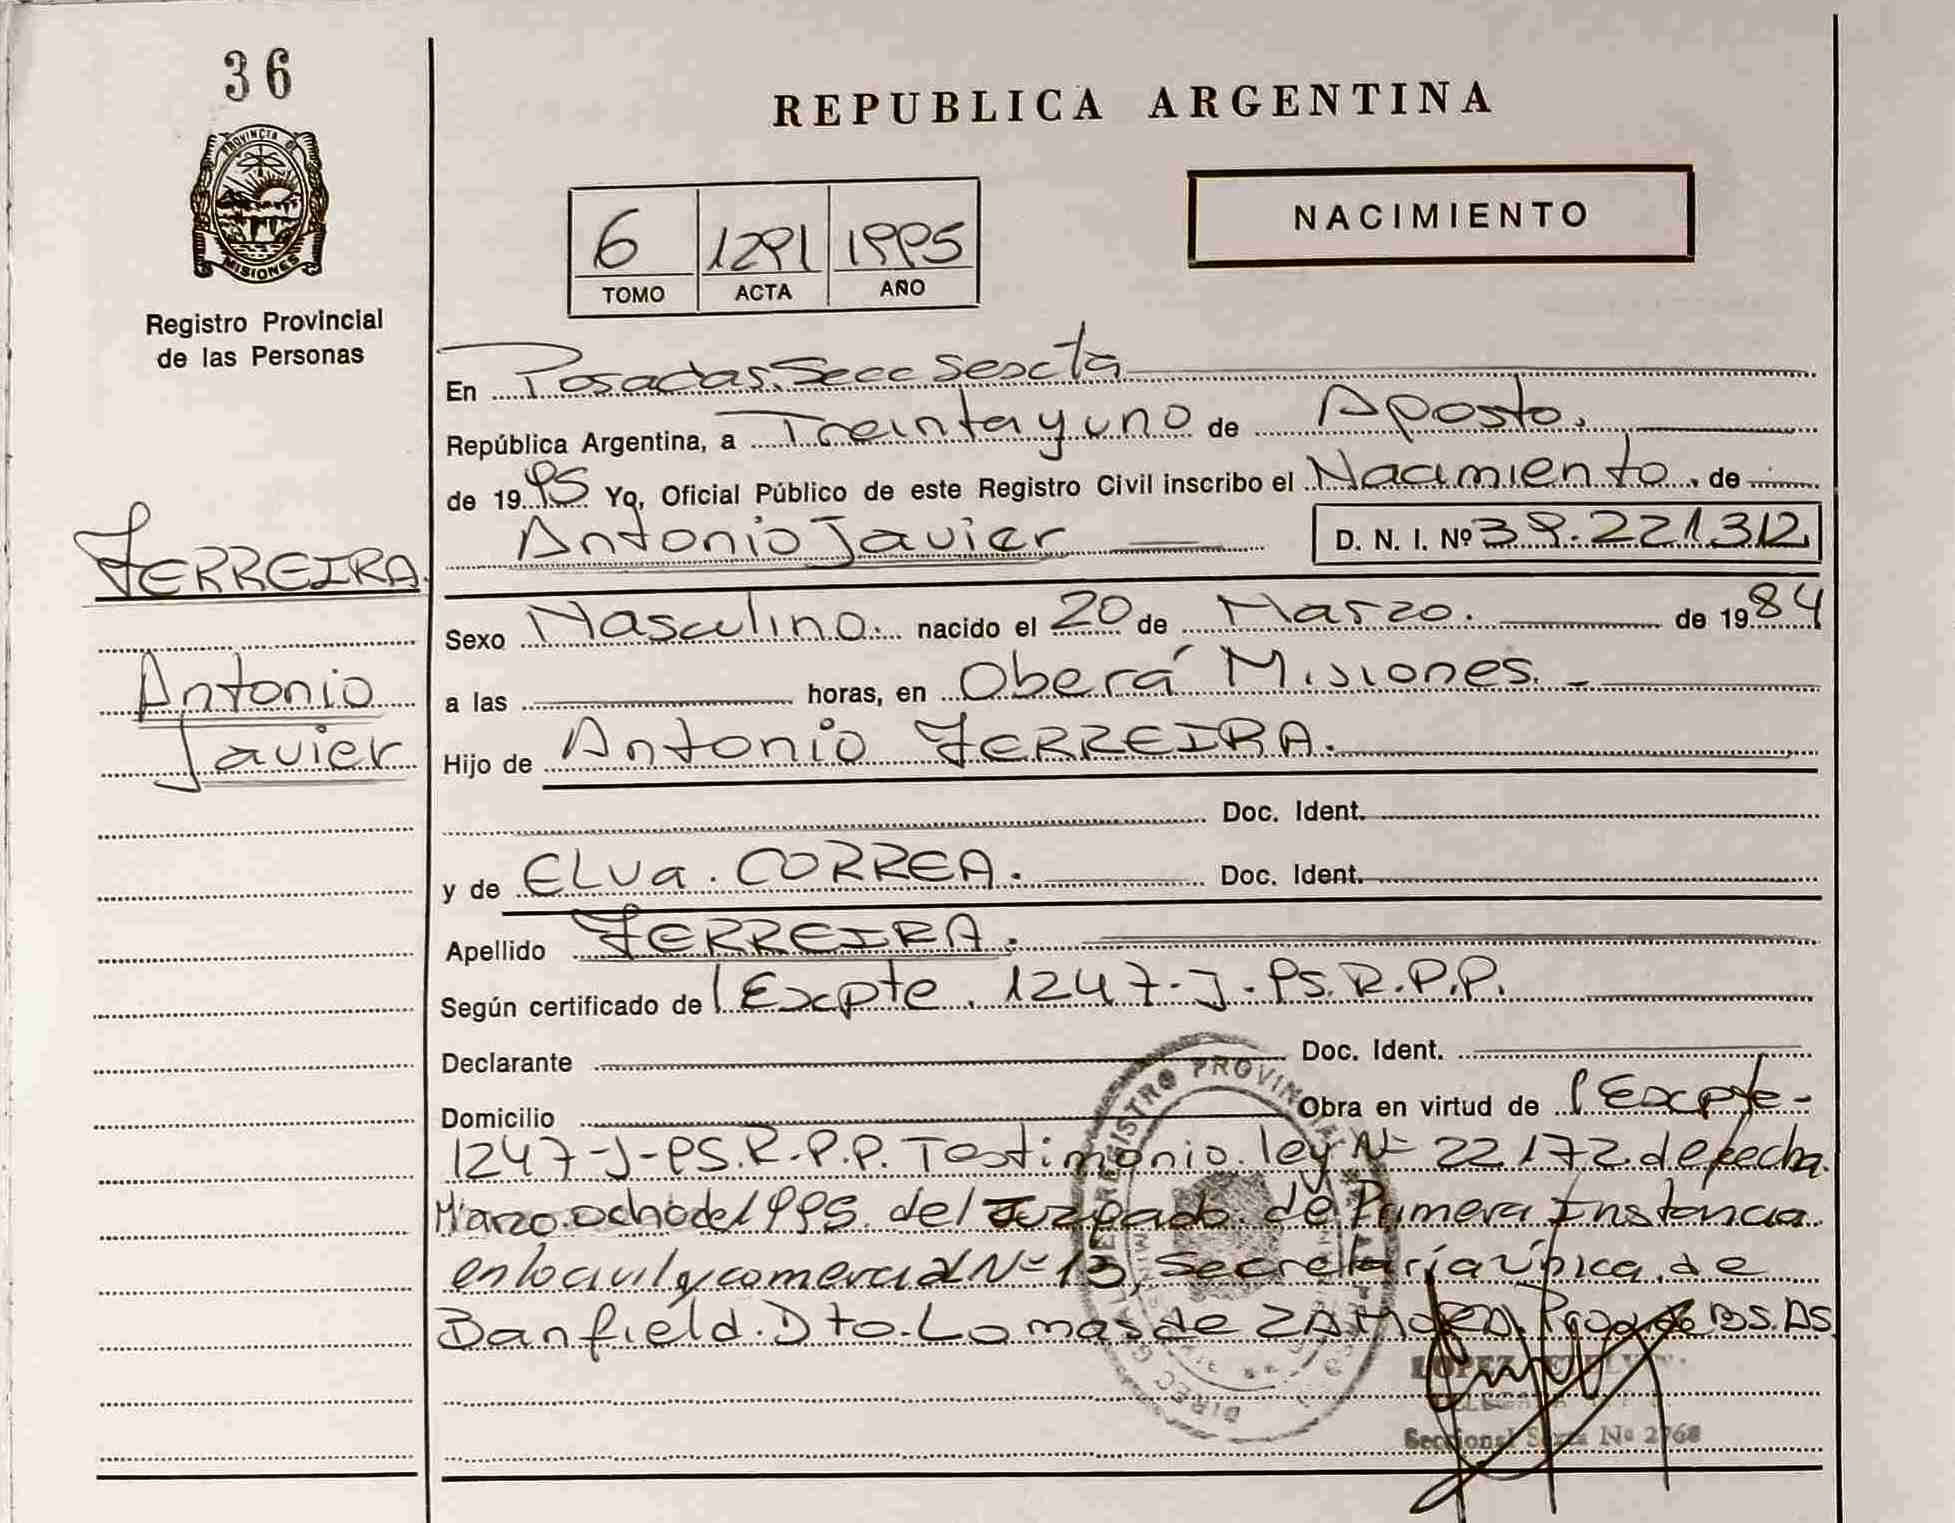 36
PROVINCIA DE
MISIONES
Registro Provincial
de las Personas
REPUBLICA ARGENTINA
NACIMIENTO
6 1291 1995
TOMO ACTA AÑO
En Posadas. Secc Sexcta
República Argentina, a Treinta y uno de Agosto.
de 1995 Yo, Oficial Público de este Registro Civil inscribo el Nacimiento. de
Antonio Javier D. N. I. Nº 39.221312
FERREIRA.
Antonio
Javier
Sexo Masculino. nacido el 20 de Marzo. de 1984
a las horas, en Oberá Misiones.
Hijo de Antonio FERREIRA.
Doc. Ident.
y de ELVa. CORREA. Doc. Ident.
Apellido FERREIRA.
Según certificado de Expte. 1247-J-PS.R.P.P.
Declarante Doc. Ident.
Domicilio Obra en virtud de Expte-
1247-J-PS.R.P.P. Testimonio. ley Nº 22.172. de fecha.
Marzo. ocho del 1995. del Juzgado. de Primera Instancia.
en lo civil y comercial Nº 13, Secretaría única. de
Banfield. Dto. Lomas de ZAMORA. Pcia de BS. AS.
REGISTRO PROVINCIAL
LOPEZ
Seccional Sexta Nº 2768